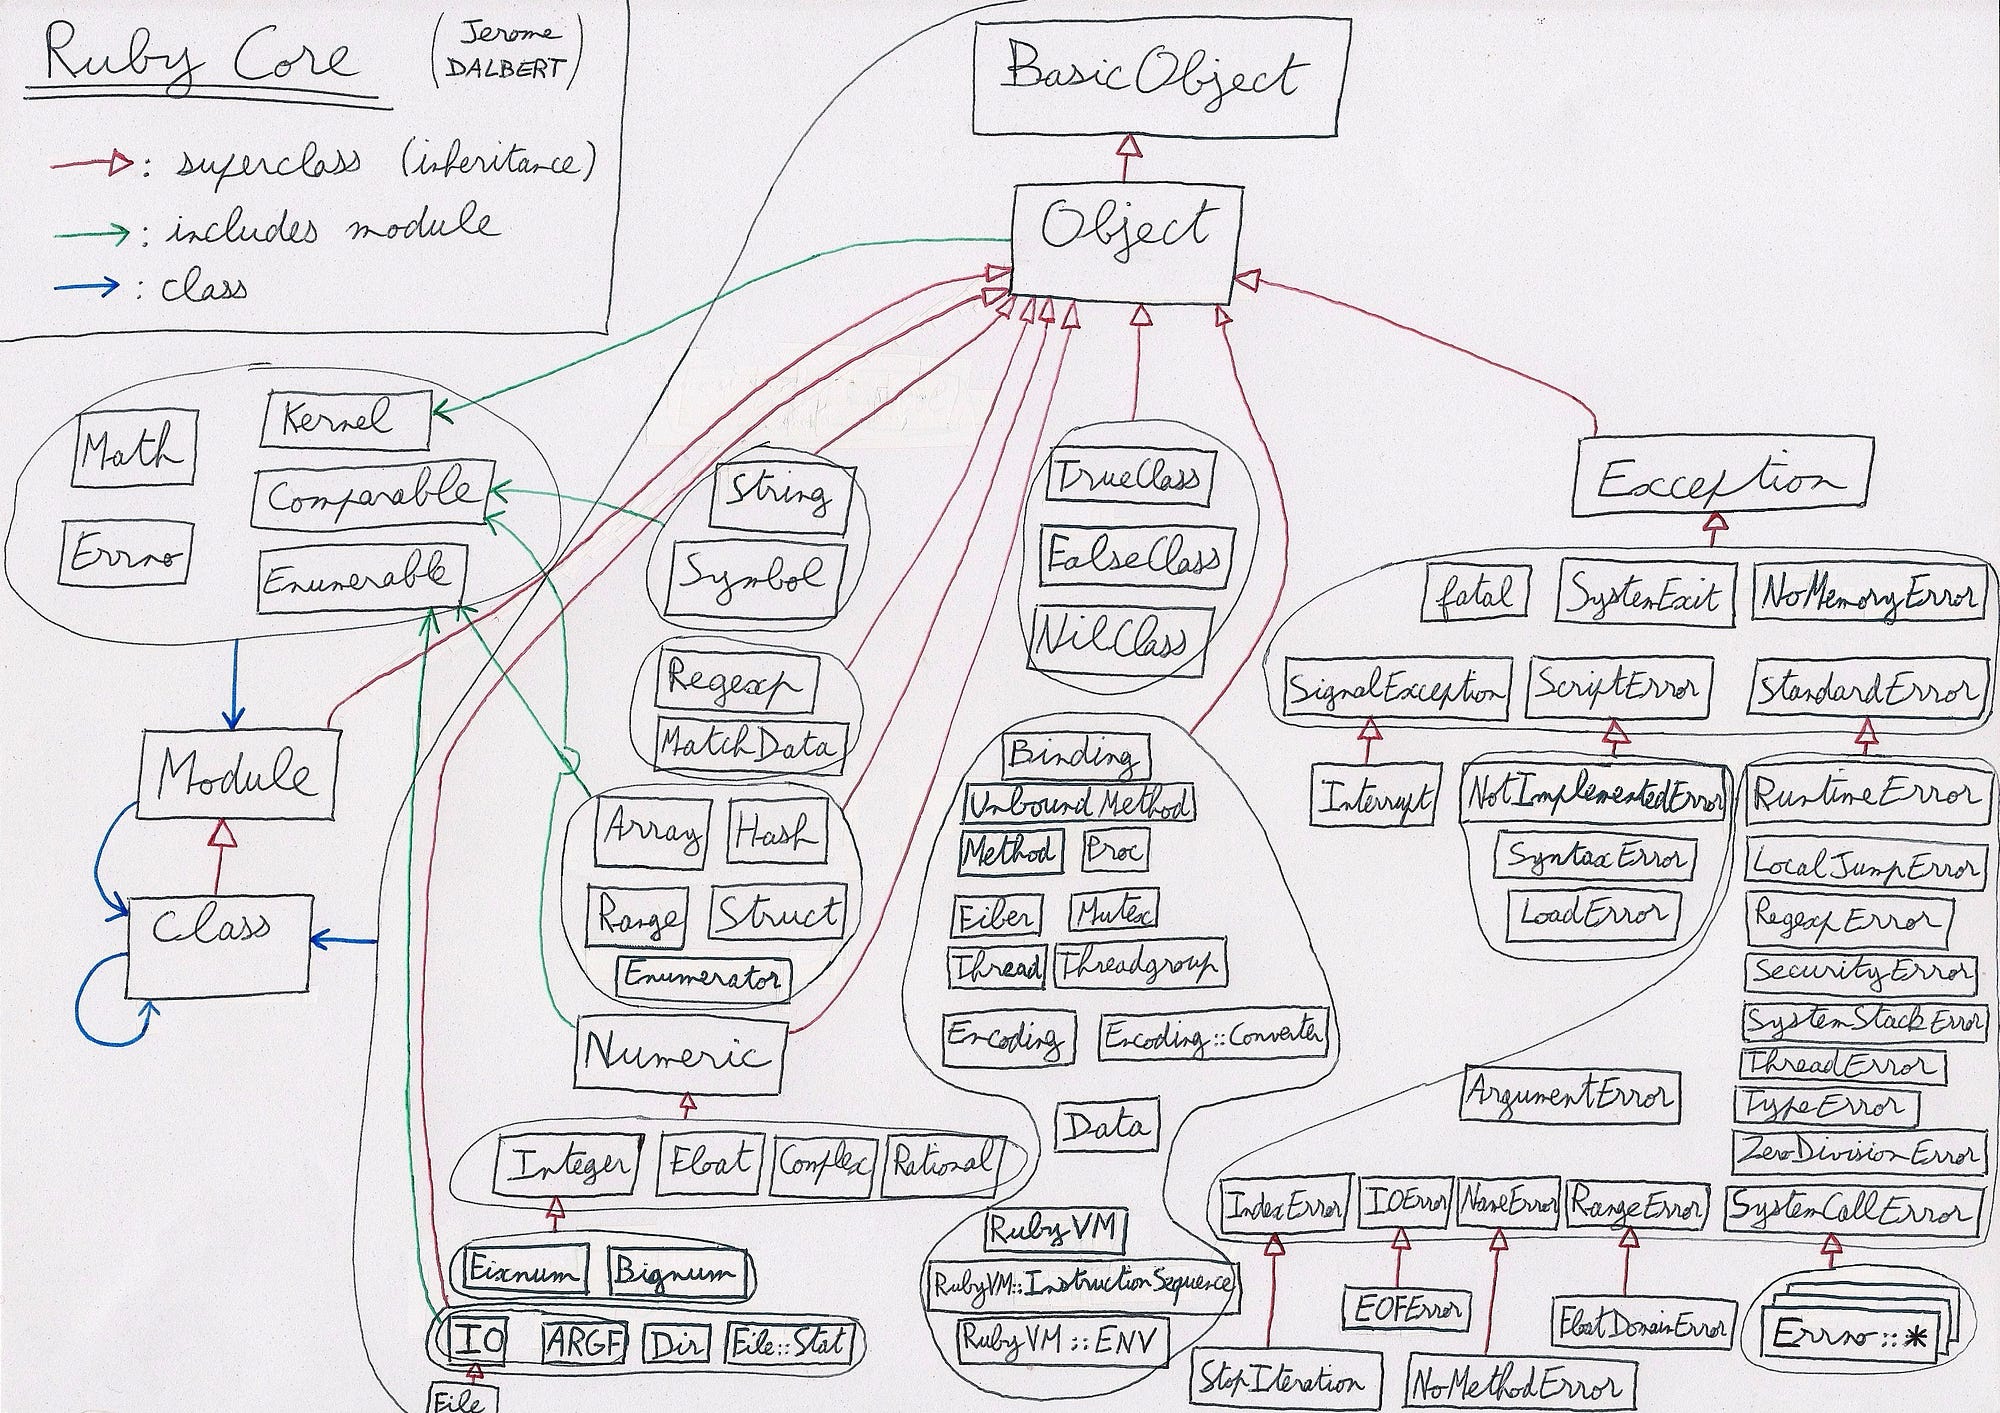 Ruby Core
(Jerome
DALBERT)
: superclass (inheritance)
: includes module
: class
BasicObject
Object
Math
Kernel
Comparable
Errno
Enumerable
String
Symbol
TrueClass
FalseClass
NilClass
Exception
fatal
SystemExit
NoMemoryError
SignalException
ScriptError
StandardError
Regexp
MatchData
Module
Class
Array
Hash
Range
Struct
Enumerator
Numeric
Binding
UnboundMethod
Method
Proc
Fiber
Mutex
Thread
Threadgroup
Encoding
Encoding::Converter
Data
Interrupt
NotImplementedError
SyntaxError
LoadError
RuntimeError
LocalJumpError
RegexpError
SecurityError
SystemStackError
ThreadError
TypeError
ZeroDivisionError
SystemCallError
ArgumentError
IndexError
IOError
NameError
RangeError
Integer
Float
Complex
Rational
Fixnum
Bignum
IO
ARGF
Dir
File::Stat
File
RubyVM
RubyVM::InstructionSequence
RubyVM::ENV
StopIteration
EOFError
NoMethodError
FloatDomainError
Errno::*